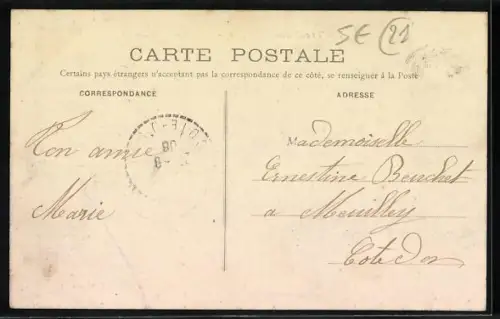 5E (21)
CARTE POSTALE
Certains pays étrangers n'acceptant pas la correspondance de ce côté, se renseigner à la Poste
CORRESPONDANCE
ADRESSE
Ton amie
Marie
Mademoiselle
Ernestine Bouchet
a Meuilley
Cote d'or